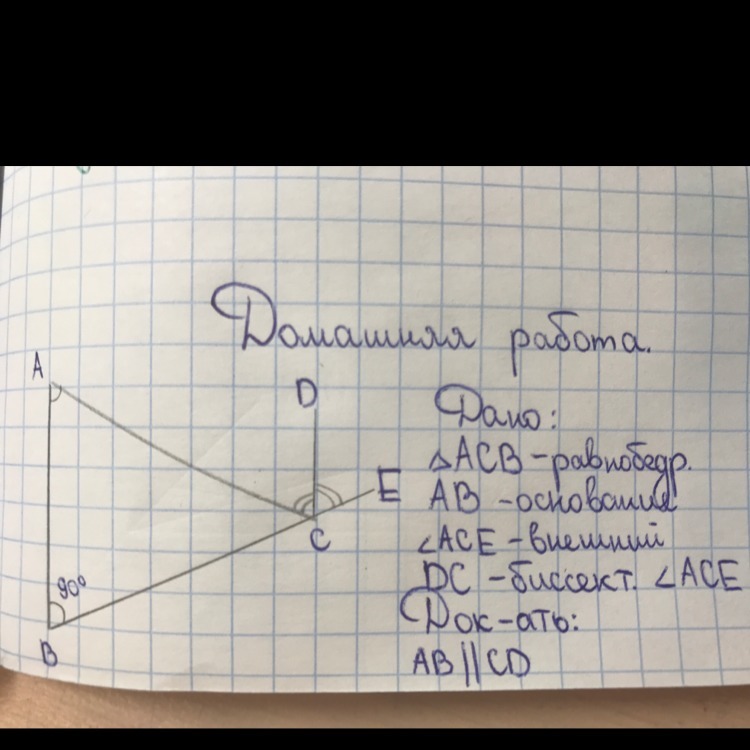 Домашняя работа.
A
D
E
C
90°
B
Дано:
△ACB - равнобедр.
AB - основание
∠ACE - внешний
DC - биссект. ∠ACE
Док-ать:
AB||CD